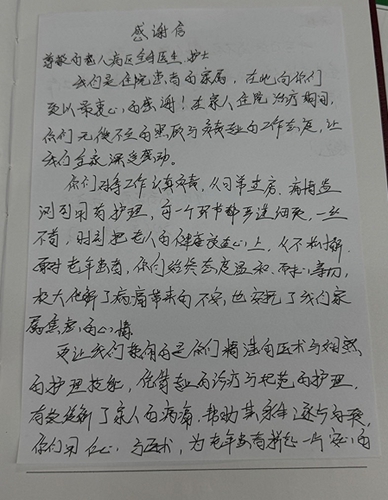 感谢信
尊敬的老人病区全科医生、护士
我们是住院患者的家属，在此向你们
致以最衷心的感谢！在家人住院治疗期间，
你们无微不至的照顾与敬业的工作态度，让
我们全家深受感动。
你们对待工作认真负责，从日常查房、病情监
测到用药护理，每一个环节都严谨细致，一丝
不苟，时刻把老人的健康放在心上，从不松懈
面对老年患者，你们始终态度温和、耐心亲切，
极大缓解了病痛带来的不安，也安抚了我们家
属焦虑的心情
更让我们敬佩的是你们精湛的医术与娴熟
的护理技能，凭借专业的治疗与规范的护理，
有效缓解了家人的病痛，帮助其身体逐步好转，
你们用仁心与医术，为老年患者撑起一片安心的